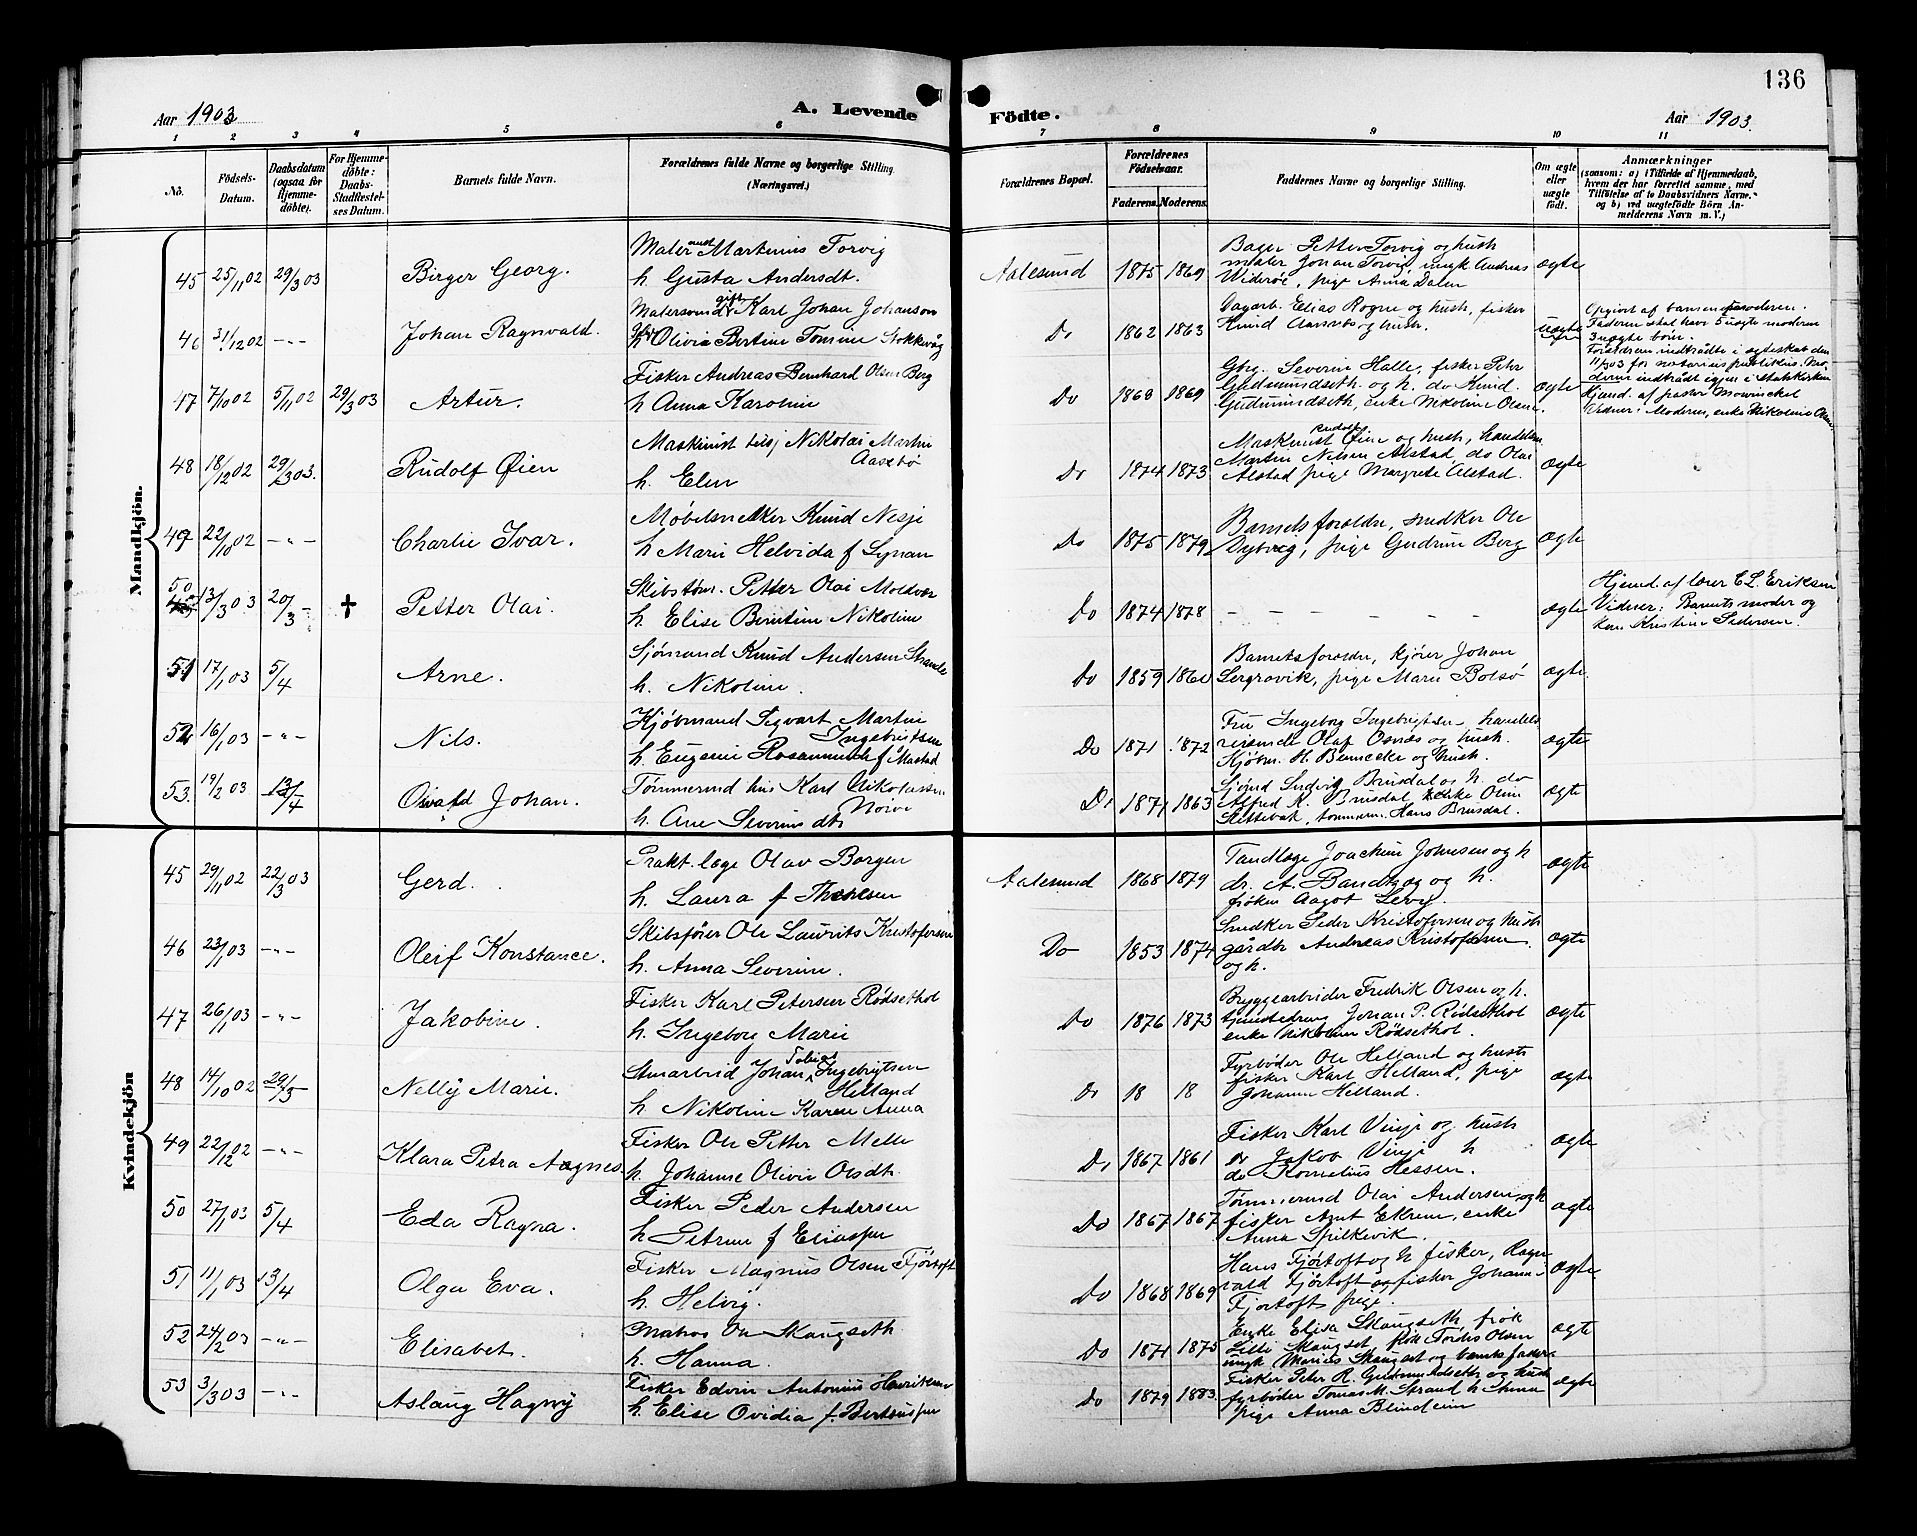 136
Aar 1903
A. Levende
Födte.
Aar 1903.
1 2 3 4 5 6 7 8 9 10 11
No.
Födsels-Datum.
Daabsdatum (ogsaa for Hjemmedöbte).
For Hjemmedöbte: Daabs-Stadfæstelses Datum.
Barnets fulde Navn.
Forældrenes fulde Navne og borgerlige Stilling (Næringsvei.)
Forældrenes Bopæl.
Forældrenes Födselsaar.
Faderens. Moderens.
Faddernes Navne og borgerlige Stilling.
Om ægte eller uægte födt.
Anmærkninger
(saasom: a) i Tilfælde af Hjemmedaab, hvem der har forrettet samme, med Tilföielse af to Daabsvidners Navne, og b) ved uægtefödte Börn Anmelderens Navn m. V.)
Mandkjön.
45 25/11 02 29/3 03 Birger Georg.
Maler Martinus Torvig
h. Gusta Andersdt.
Aalesund 1875 1869
Bager Petter Torvig og hust
maler Johan Torvig, ungk Andreas
Widerøe, pige Anna Dalen
ægte
46 31/12 02 -"- Johan Ragnvald.
gift Karl Johan Johanson
Olivia Bertine Tomine Stokkevåg
Do 1862 1863
Dagarb. Elias Rogne og hust, fisker
Knud Aarsæt og hust.
uægte
Opgivet af barnemoderen.
Faderen skal have 5 uægte moderen
3 uægte børn.
Forældrene indtrådte i ægteskab den
11/3 03 for notarius publicus. Moderen indtrådt igjen i statskirken
47 7/10 02 5/11 02 29/3 03 Artur.
Fisker Andreas Bernhard Olsen Berg
h Anna Karoline
Do 1869 1869
Gbrg. Severin Halle, fisker Petr
Gudmundseth og h. do Knud
Gudmundseth, enke Nikoline Olsen.
ægte
Hjemd. af pastor Mowinckel
Vidner: Moderen, enke Nikoline Olsen
48 18/12 02 29/3 03. Rudolf Øien
Maskinist Nikolai Martin
Aasebø
h. Elen
Do 1874 1873
Maskinist Rudolf Øien og hust, handelsm
Martin Nilsen Alstad, do Olai
Alstad pige Margrete Alstad.
ægte
49 22/10 02 -"- Charlie Ivar.
Møbelsnekker Knud Nesje
h Marie Helvida f Synan
Do 1875 1879
Barnets foreldre, snedker Ole
Dybvig, pige Gudrun Berg
ægte
50 13/3 03 20/3 - † Petter Olai.
Skibstøm. Petter Olai Moldvær
h. Elise Berntine Nikoline
Do 1874 1878 - - - - -
ægte
Hjemd. af lærer C L. Eriksen
Vidner: Barnets moder og
Kristine Pedersen.
51 17/1 03 5/4 Arne.
Sjømand Knud Andersen Strande
h. Nikoline.
Do 1859 1860
Barnets foreldre, kjører Johan
pige Marie Bolsø
ægte.
52 16/1 03 -"- Nils.
Kjøbmand Sigvart Martin
Ingebrigtsen
h. Eugenie Rosamunde f Måstad
Do 1871 1872
Fru Ingeborg Ingebrigtsen, handels
reisende Olaf Osnæs og hust.
Kjøbm. H. Bennecke og hust.
ægte
53. 19/2 03 13/4 Osvald Johan.
Tømmermd hus Karl Nikolaisen
Nörve
h. Ane Severine dt.
Do 1871 1863
Sjømd Ludvig Brusdal og h. do
Alfred K. Brusdal enke Oline
Slettebak, tømmerm. Hans Brusdal.
ægte
Kvindekjön
45 29/11 02 22/3 03 Gerd.
Prakt. læge Olav Borgen
h. Laura f Thoresen
Aalesund 1868 1879
Tandlæge Joachim Johnsen og h
dr. A. og h.
frøken Aagot Levy.
ægte
46 23/1 03 -"- Oleif Konstance.
Skibsfører Ole Laurits Kristofersen
h. Anna Severine.
Do 1853 1874
Snedker Peder Kristofersen og hust
gårdbr Andreas Kristofersen
og h.
ægte
47 26/1 03 -"- Jakobine.
Fisker Karl Petersen Rödsethol
h. Ingeborg Marie
Do 1876 1873
Bryggearbeider Fredrik Olsen og h.
tjenestedreng Johan P. Rödsethol
enke Nikoline Rödsethol.
ægte
48 14/10 02 29/3 Nelly Marie.
Johan Tobias Ingebrigtsen
Helland
h Nikoline Karen Anna
Do 18 18
Fyrbøder Ole Helland og hust
fisker Karl Helland, pige
Johanne Helland.
ægte
49 22/12 02 -"- Klara Petra Aagnes.
Fisker Ole Petter Melle
h. Johanne Olivie Olsdt.
Do 1867 1861
Fisker Karl Vinje og hust
do Jakob Vinje h
do Kornelius Hessen.
ægte
50 27/1 03 5/4 Eda Ragna.
Fisker Peder Andersen
h Petrine f Eliasson
Do 1867 1867
Tømmermd Olai Andersen og h
fisker Arnt Ekrem, enke
Anna Spilkevik.
ægte
51 11/1 03 13/4 Olga Eva.
Fisker Magnus Olsen Fjörtoft
h. Helvig.
Do 1868 1869
Hans Fjörtoft og h fisker, Ragnvald Fjörtoft og fisker Johan
Fjortoft pige.
ægte
52 24/2 03 -"- Elisabet.
Matros Ole Skaugseth.
h. Hanna.
Do 1871 1875
Enke Elisa Skaugseth, frøk
Lilli Skaugset, frøk Tordis Olsen
ungk Marius Skaugset og barnets fader
ægte
53 3/3 03 -"- Aslaug Hagny
Fisker Edvin Antonius Henriksen
h. Elise Ovidia f. Berteussen
Do 1879 1883.
Fisker Peter R. Gudmundseth og hust
fyrbøder Tomas M. Strand h Anna
pige Anna Blindheim
ægte